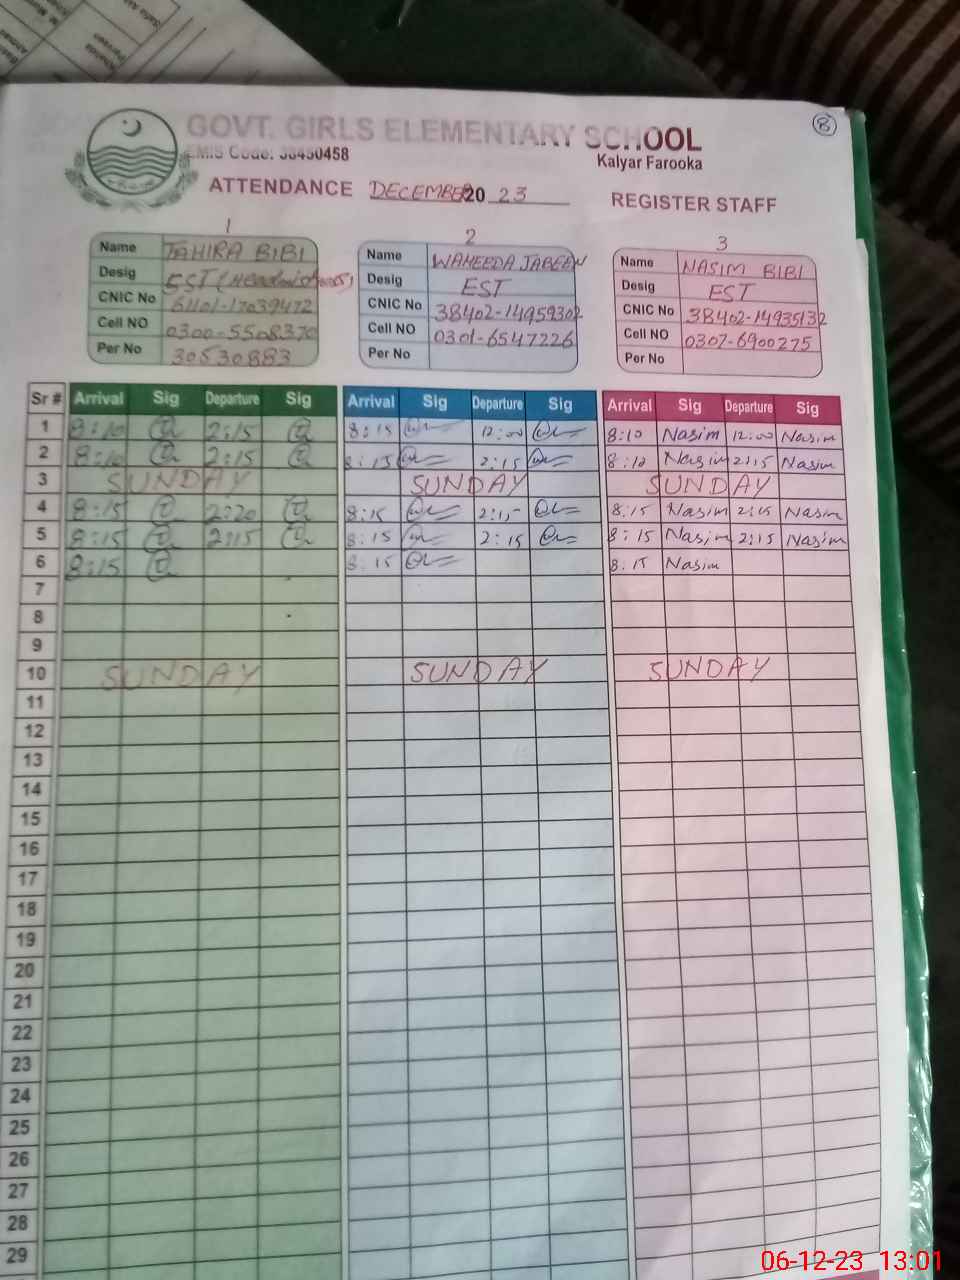 8
GOVT. GIRLS ELEMENTARY SCHOOL
EMIS Code: 38450458
Kalyar Farooka
ATTENDANCE DECEMBER 2023
REGISTER STAFF
1
Name TAHIRA BIBI
Desig EST (Headmistress)
CNIC No 61101-17039472
Cell NO 0300-5508370
Per No 30530883
2
Name WAHEEDA JABEEN
Desig EST
CNIC No 38402-1495930
Cell NO 0301-6547226
Per No
3
Name NASIM BIBI
Desig EST
CNIC No 38402-14935132
Cell NO 0307-6900275
Per No
Sr # Arrival Sig Departure Sig Arrival Sig Departure Sig Arrival Sig Departure Sig
1 8:10 2:15 8:15 12:00 8:10 Nasim 12:00 Nasim
2 8:10 2:15 8:15 2:15 8:10 Nasim 2:15 Nasim
3 SUNDAY SUNDAY SUNDAY
4 8:15 2:20 8:15 2:15 8:15 Nasim 2:15 Nasim
5 8:15 2:15 8:15 2:15 8:15 Nasim 2:15 Nasim
6 8:15 8:15 8:15 Nasim
7
8
9
10 SUNDAY SUNDAY SUNDAY
11
12
13
14
15
16
17
18
19
20
21
22
23
24
25
26
27
28
29
06-12-23 13:01